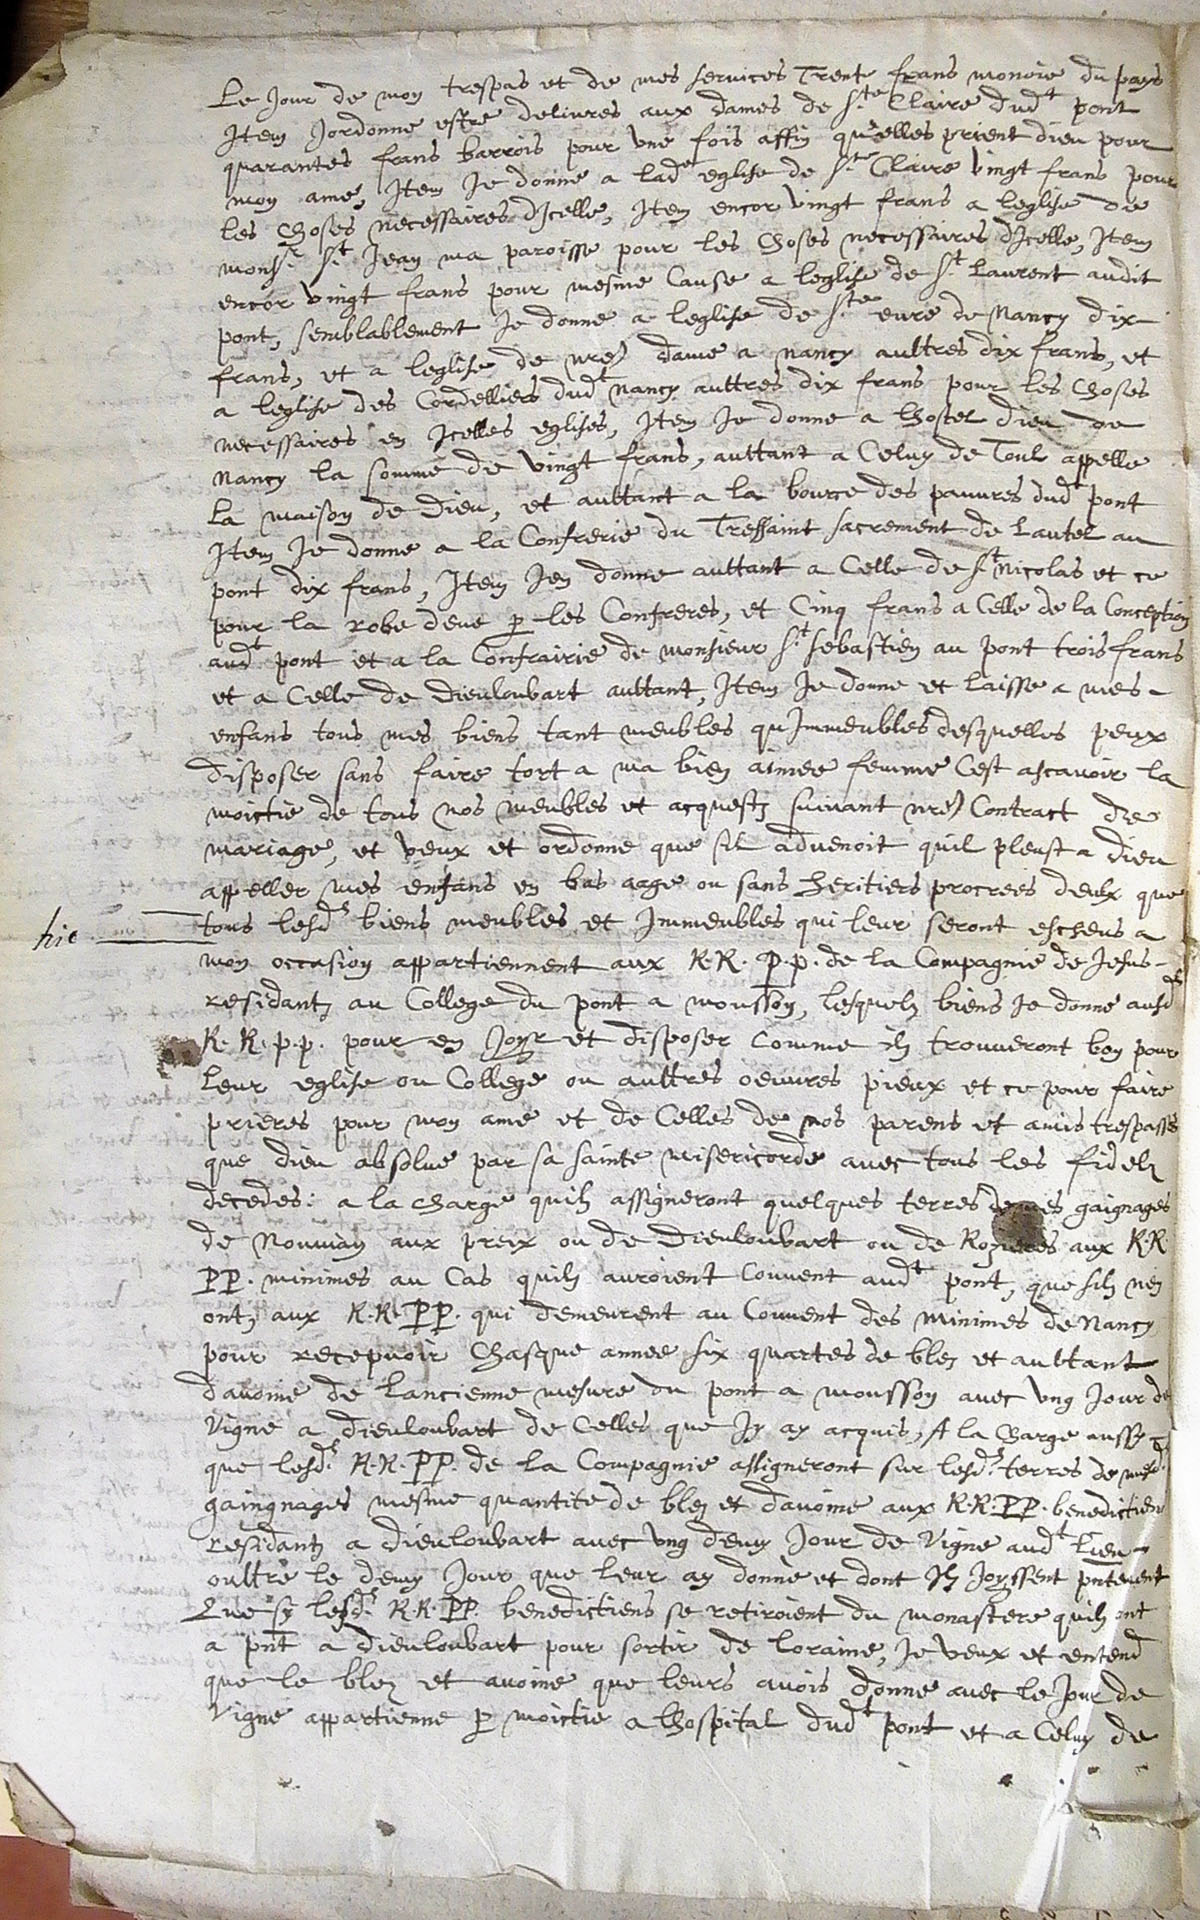 Le Jour de mon trespas et de mes services Trente frans monoie du pays
Item Jordonne estre delivres aux dames de Ste Claire dudt pont
quarantes frans barrois pour une fois affin qu'elles prient dieu pour
mon ame, Item Je donne a lade eglise de Ste Claire vingt frans pour
les choses necessaires dJcelle, Item encor vingt frans a leglise de
monsr St Jean ma paroisse pour les choses necessaires dJcelle, Item
encor vingt frans pour mesme Cause a leglise de St Laurent audit
pont, semblablement Je donne a leglise de Ste eure de Nancy dix
frans, et a leglise de nre dame a nancy aultres dix frans, et
a leglise des Cordelliers dudt Nancy auttres dix frans pour les choses
necessaires en Jcelles eglises, Item Je donne a lhostel dieu de
Nancy la somme de vingt frans, auttant a Celuy de Toul appelle
La maison de Dieu, et aultant a la bource des pauvres dudt pont
Item Je donne a la Confrerie du Tressaint sacrement de Lautel au
pont dix frans, Item Jen donne auttant a Celle de St Nicolas et ce
pour la robe deue p les Confreres, et Cinq frans a Celle de la Conception
audt pont et a la Confrairie de monsieur St Sebastien au pont trois frans
et a Celle de Dieulouart aultant, Item Je donne et laisse a mes
enfans tous mes biens tant meubles qu Jmmeubles desquelles peux
disposer sans faire tort a ma bien aimee femme Cest ascavoir la
moictie de tous nos meubles et acquestz suivant nre Contract de
mariage, et veux et ordonne que sil advenoit quil pleust a Dieu
appeller mes enfans en bas aage ou sans heritiers procrees deulx que
hic
tous lesds biens meubles et Jmmeubles qui leur seront escheus a
mon occasion appartiennent aux R.R. P.p. de la Compagnie de Jesus
residantz au College du pont a mousson, lesquelz biens Je donne ausds
R.R.p.p. pour en Joyr et disposer comme ilz trouveront bon pour
Leur eglise ou College ou auttres oeuvres pieux et ce pour faire
prieres pour mon ame et de Celles de nos parens et amis trespasses
que dieu absolve par sa sainte misericorde avec tous les fidelz
decedes: a la charge quilz assigneront quelques terres de mes gaignages
de Nouuian aux preix ou de Dieulouart ou de Rozieres aux R.R.
PP. minimes au Cas quilz auroient Convent audt pont, que silz nen
ontz aux R.R. PP. qui demeurent au Couvent des minimes de Nancy
pour recepvoir Chasque annee six quartes de blez et aultant
davoine de Lancienne mesure du pont a mousson avec ung Jour de
vigne a Dieulouart de Celles que Jy ay acquis, A la charge aussy
que lesds R.R. PP. de la Compagnie assigneront sur lesds terres de mesds
gaingnages mesme quantite de blez et davoine aux R.R. PP. benedictiens
residantz a dieulouart avec ung demy Jour de vigne audt lieu
oultre le demy Jour que leur ay donne et dont Jlz Joyssent pntement
Que sy lesds R.R. PP. benedictiens se retiroient du monastere quilz ont
a pnt a dieulouart pour sortir de Loraine, Je veux et entend
que le blez et avoine que leurs avois donne avec le Jour de
vigne appartienne p moictie a lhospital dudt pont et a Celuy de